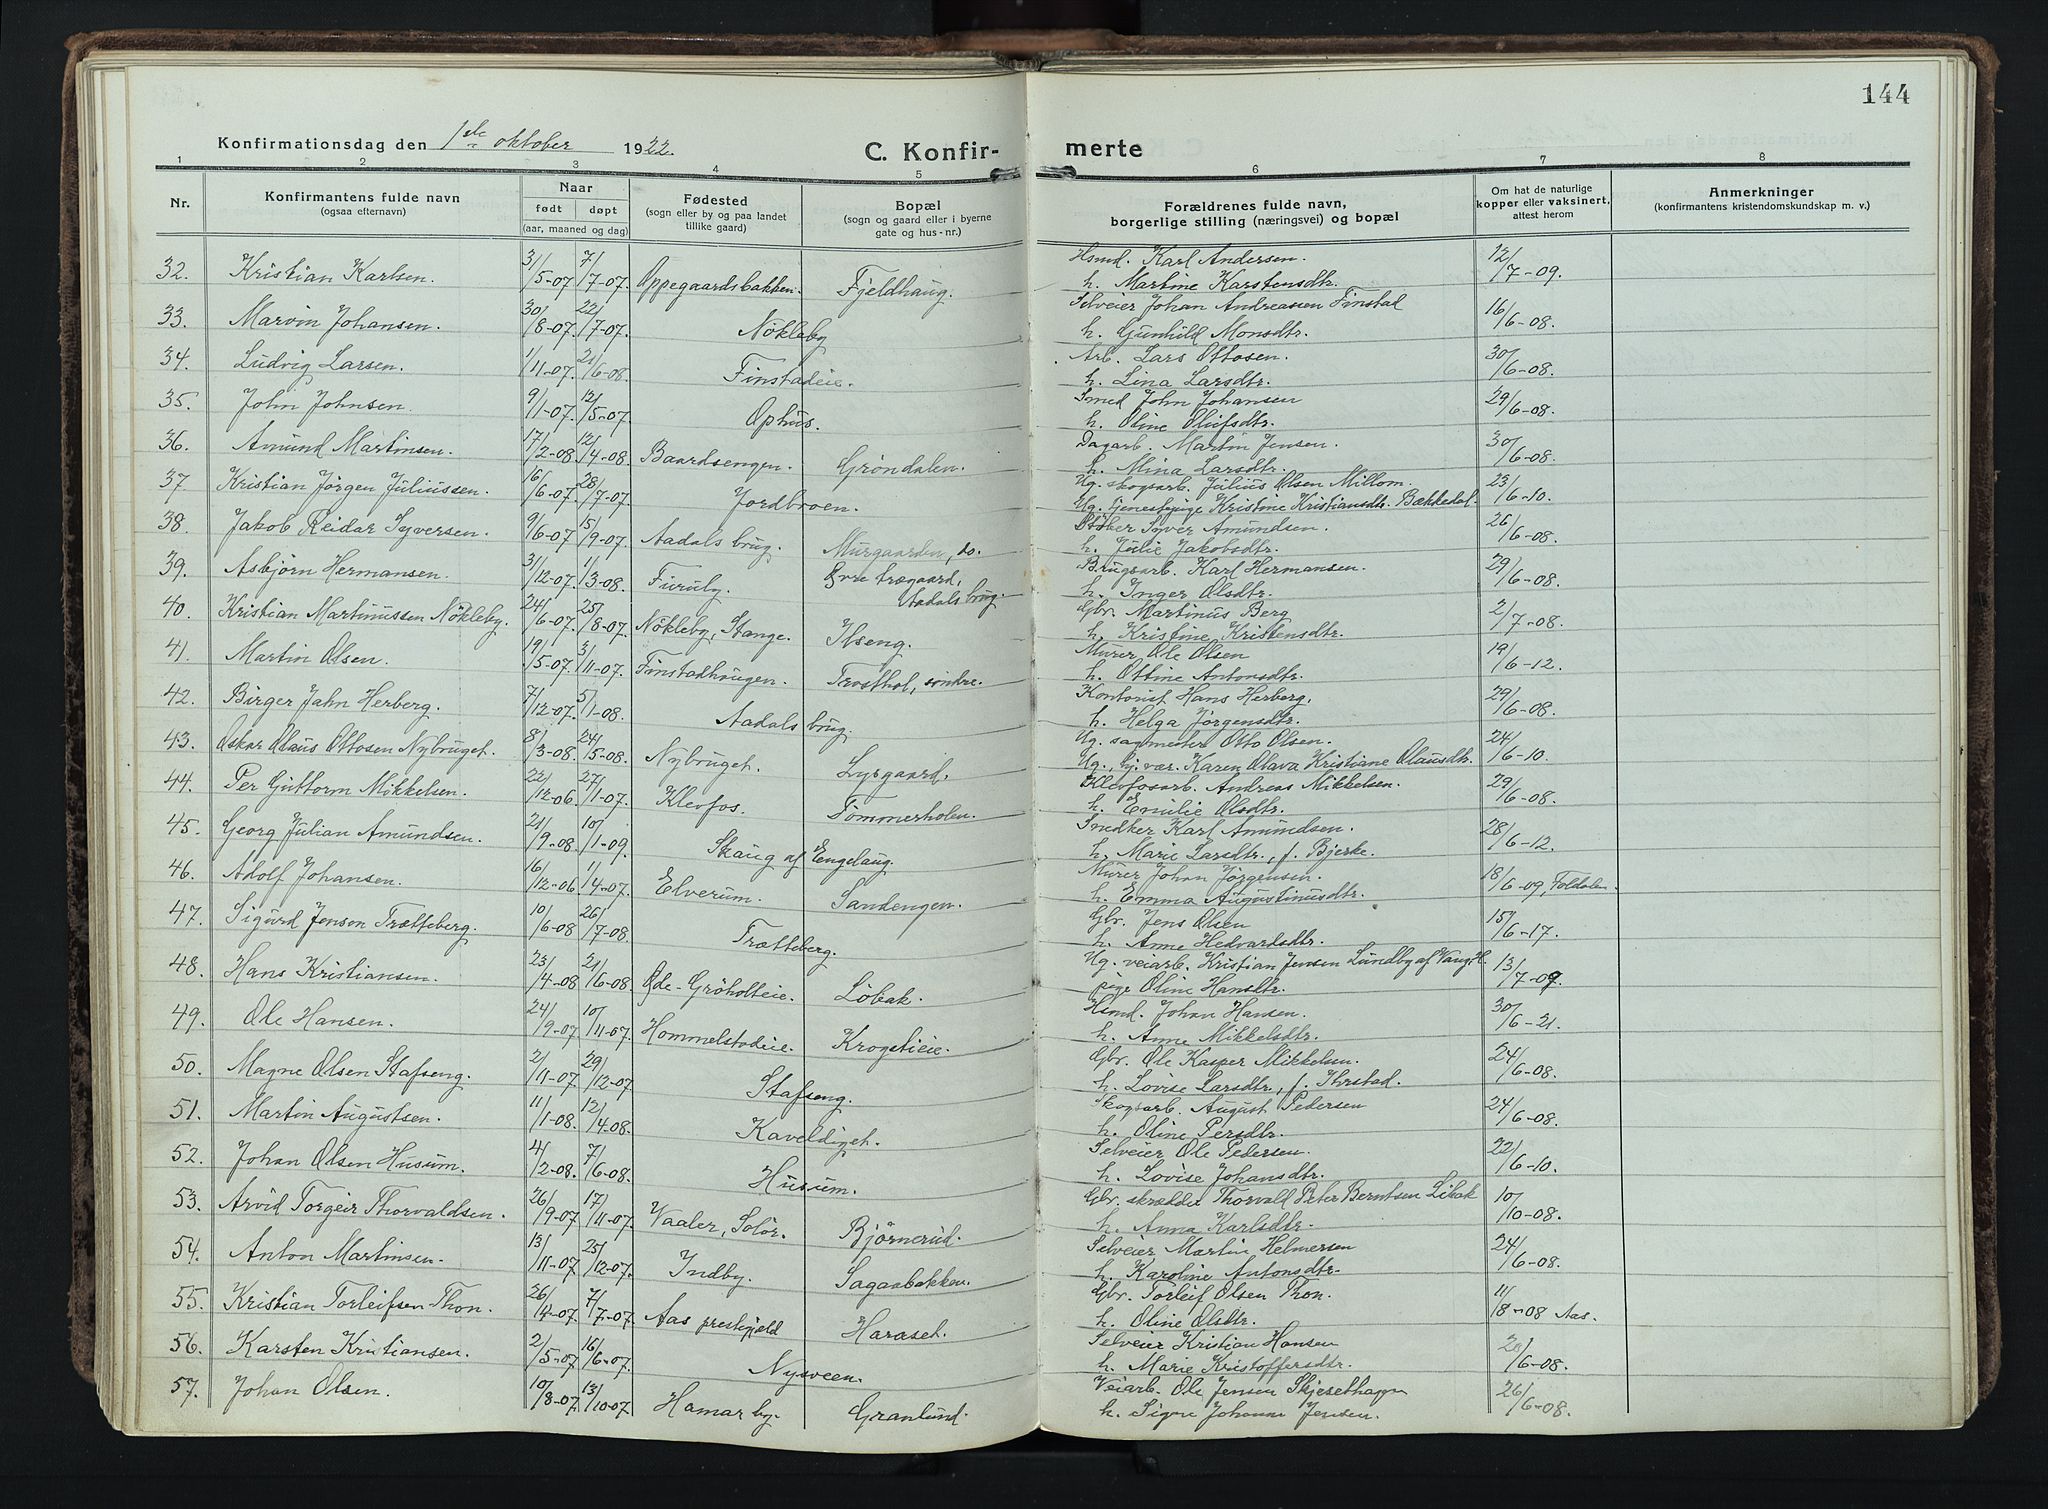 144
Konfirmationsdag den 1ste oktober 1922.
C. Konfir-
merte
1 2 3 4 5 6 7 8
Nr. Konfirmantens fulde navn (ogsaa efternavn) Naar født døpt (aar, maaned og dag) Fødested (sogn eller by og paa landet tillike gaard) Bopæl (sogn og gaard eller i byerne gate og hus-nr.) Forældrenes fulde navn, borgerlige stilling (næringsvei) og bopæl Om hat de naturlige kopper eller vaksinert, attest herom Anmerkninger (konfirmantens kristendomskundskap m. v.)
32. Kristian Karlsen. 31/5-07 7/7-07. Oppegaardsbakken. Fjeldhaug. Hsmd. Karl Andersen. 12/7-09.
h. Martine Karstensdtr.
33. Marvin Johansen. 30/8-07. 22/7-07. Nökleby Selveier Johan Andreassen Finstad 16/6-08.
h. Gunhild Monsdtr.
34. Ludvig Larsen. 1/11-07. 21/6-08. Finstadeie. Arb. Lars Ottosen. 30/6-08.
h. Lina Larsdtr.
35. John Johnsen. 9/1-07. 12/5-07. Ophus. Smed John Johansen 29/6-08.
h. Oline Olufsdtr.
36. Amund Martinsen. 17/2-08. 12/4-08. Baardsengen. Gröndalen. Dagarb. Martin Jensen. 30/6-08.
h. Mina Larsdtr.
37. Kristian Jörgen Juliussen. 16/6-07. 28/7-07. Jordbroen. Ug. skogsarb. Julius Olsen Millom. 23/6-10.
Ug. tjenestepige Kristine Kristiansdtr. Bækkedal.
38. Jakob Reidar Syversen. 9/6-07. 15/9-07. Aadals brug. Murgaarden, do. Støber Syver Amundsen. 26/6-08.
h. Julie Jakobsdtr.
39. Asbjörn Hermansen. 31/12-07. 1/3-08. Furuby. Øvre trægaard, Aadals brug. Brugsarb. Karl Hermansen. 29/6-08.
h. Inger Olsdtr.
40. Kristian Martinussen Nökleby. 24/6-07. 25/8-07. Nökleby, Stange. Ilseng. Gbr. Martinus Berg 2/7-08.
h. Kristine Kristensdtr.
41. Martin Olsen. 19/5-07. 3/11-07. Finstadhaugen. Trosthol, söndre. Murer Ole Olsen 19/6-12.
h. Ottine Antonsdtr.
42. Birger Jahn Herberg. 7/12-07. 5/1-08. Aadals brug. Kontorist Hans Herberg. 29/6-08.
h. Helga Jörgensdtr.
43. Oskar Olaus Ottosen Nybruget. 8/3-08. 24/5-08. Nybruget. Lysgaard. Ug. sagmester Otto Olsen. 24/6-10.
Ug., hj. vær. Karen Olava Kristiane Olausdtr.
44. Per Guttorm Mikkelsen. 22/12-06. 27/1-07. Klevfos. Tömmerholen. Klevfosarb. Andreas Mikkelsen. 29/6-08.
h. Emilie Olsdtr.
45. Georg Julian Amundsen. 21/9-08. 10/1-09. Skaug af Engelaug. Snedker Karl Amundsen. 28/6-12.
h. Marie Larsdtr., f. Bjerke.
46. Adolf Johansen. 16/12-06. 1/4-07. Elverum. Sandengen. Murer Johan Jörgensen. 18/6-09, Foldalen.
h. Emma Augustinusdtr.
47. Sigurd Jenson Trætteberg. 10/6-08 26/7-08. Trætteberg. Gbr. Jens Olsen 15/6-17.
h. Anne Hedvardsdtr.
48. Hans Kristiansen. 23/4-08 21/6-08. Øde-Gröholteie. Löbak. Ug. veiarb. Kristian Jensen Lundby af Vang, H. 13/7-09.
pige Oline Hansdtr.
49. Ole Hansen. 24/9-07. 10/11-07 Hommelstadeie. Krogstieie. Hsmd. Johan Hansen. 30/6-21.
h. Anne Mikkelsdtr.
50. Magne Olsen Stafseng. 2/11-07. 29/12-07. Stafseng. Gbr. Ole Kasper Mikkelsen. 24/6-08.
h. Lovise Larsdtr., f. Thrstad.
51. Martin Augustsen. 11/1-08. 12/4-08. Kaveldiget. Skogsarb. August Pedersen 24/6-08.
h. Oline Persdtr.
52. Johan Olsen Husum. 4/2-08. 7/6-08. Husum. Selveier Ole Pedersen. 22/6-10.
h. Lovise Johansdtr.
53. Arvid Torgeir Thorvaldsen. 26/9-07. 17/11-07. Vaaler, Solör. Björnerud. Gbr. skrædder Thorvald Peter Berntsen Libak 10/10-08.
h. Anna Karlsdtr.
54. Anton Martinsen. 13/11-07. 25/12-07. Indby. Sagaabakken. Selveier Martin Helmersen 24/6-08.
h. Karoline Antonsdtr.
55. Kristian Torleifsen Thon. 26/4-07. 7/7-07. Aas prestegjeld Haraset. Gbr. Torleif Olsen Thon. 11/18-08 Aas.
h. Oline Olsdtr.
56. Karsten Kristiansen. 2/5-07. 16/6-07. Nysveen. Selveier Kristian Hansen /6-08.
h. Marie Kristoffersdtr.
57. Johan Olsen. 10/8-07. 13/10-07. Hamar by. Granlund. Veiarb. Ole Jensen Skjesethagen 26/6-08.
h. Signe Johanne Jensen.